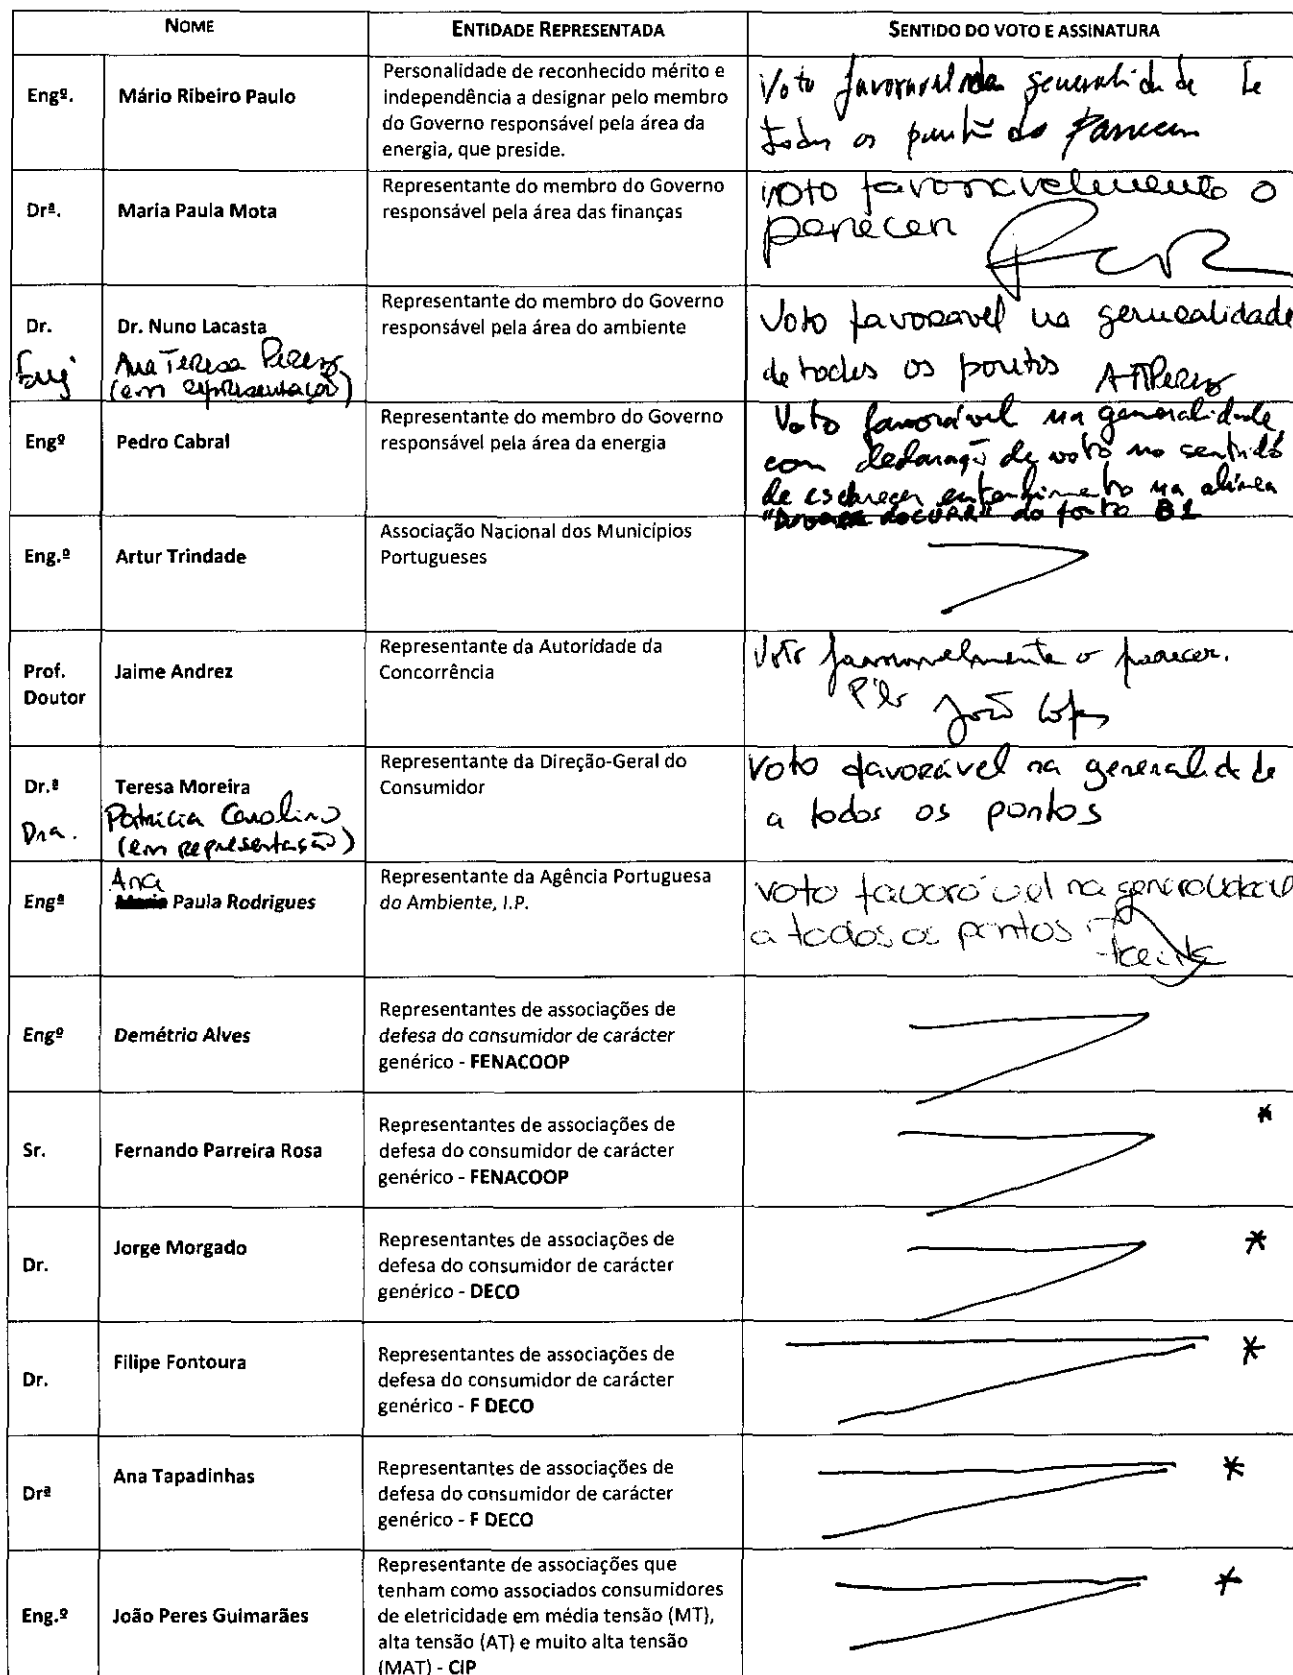 NOME ENTIDADE REPRESENTADA SENTIDO DO VOTO E ASSINATURA
Engº. Mário Ribeiro Paulo
Personalidade de reconhecido mérito e
independência a designar pelo membro
do Governo responsável pela área da
energia, que preside.
Voto favoravel na generalidade de
todos os pontos do Parecer
Drª. Maria Paula Mota
Representante do membro do Governo
responsável pela área das finanças
voto favoravelmente o
parecer
Dr. Dr. Nuno Lacasta
Engª Ana Teresa Perez
(em representação)
Representante do membro do Governo
responsável pela área do ambiente
Voto favoravel na generalidade
de todos os pontos ATPerez
Engº Pedro Cabral
Representante do membro do Governo
responsável pela área da energia
Voto favorável na generalidade,
com declaração de voto no sentido
de esclarecer entendimento na alínea
do ponto B1
Eng.º Artur Trindade
Associação Nacional dos Municípios
Portugueses
Prof.
Doutor
Jaime Andrez
Representante da Autoridade da
Concorrência
Voto favoravelmente o parecer.
João Lopes
Dr.ª Teresa Moreira
Dra. Patrícia Carolino
(em representação)
Representante da Direção-Geral do
Consumidor
Voto favorável na generalidade
a todos os pontos
Ana
Engª Paula Rodrigues
Representante da Agência Portuguesa
do Ambiente, I.P.
voto favorável na generalidade
a todos os pontos
Engº Demétrio Alves
Representantes de associações de
defesa do consumidor de carácter
genérico - FENACOOP
Sr. Fernando Parreira Rosa
Representantes de associações de
defesa do consumidor de carácter
genérico - FENACOOP
*
Dr. Jorge Morgado
Representantes de associações de
defesa do consumidor de carácter
genérico - DECO
*
Dr. Filipe Fontoura
Representantes de associações de
defesa do consumidor de carácter
genérico - F DECO
*
Drª Ana Tapadinhas
Representantes de associações de
defesa do consumidor de carácter
genérico - F DECO
*
Eng.º João Peres Guimarães
Representante de associações que
tenham como associados consumidores
de eletricidade em média tensão (MT),
alta tensão (AT) e muito alta tensão
(MAT) - CIP
*